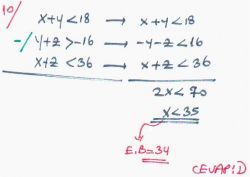 10/
x+y<18 → x+y<18
-/ y+z>-16 → -y-z<16
x+z<36 → x+z<36
2x<70
x<35
E.B=34
CEVAP:D